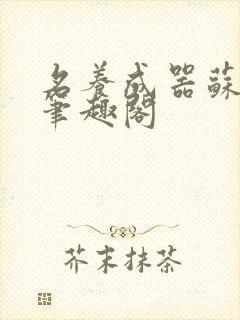 名養成器蘇
筆趣閣
芥末抹茶